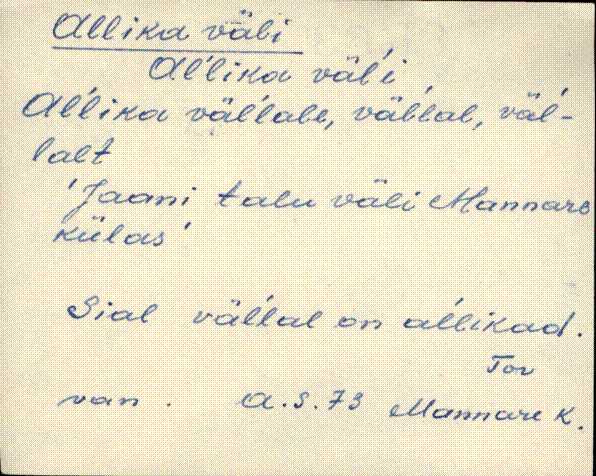 Allika väli
Al'lika väl'i
Al'lika väl'lale, väl'lal, väl'-
lalt
'Jaani talu väli Mannare
külas'
Sial väl'lal on al'likad.
Tor
van. A.S. 73 Mannare K.